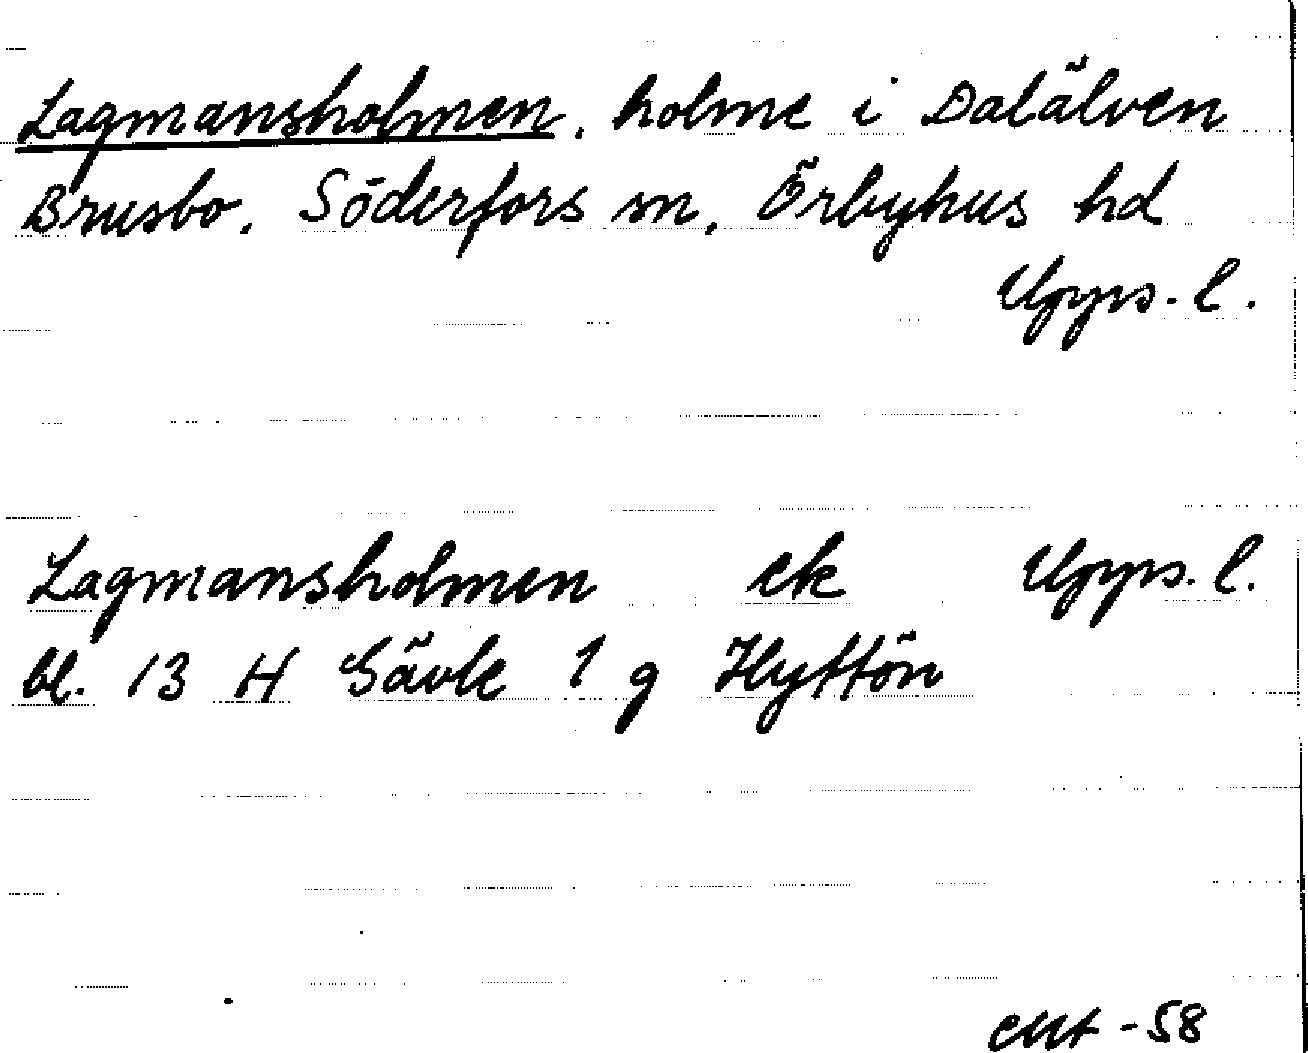 Lagmansholmen, holme i Dalälven
Brusbo, Söderfors sn, Örbyhus hd
Upps. l.
Lagmansholmen ek Upps. l.
bl. 13 H Gävle 1 g Hyttön
-58